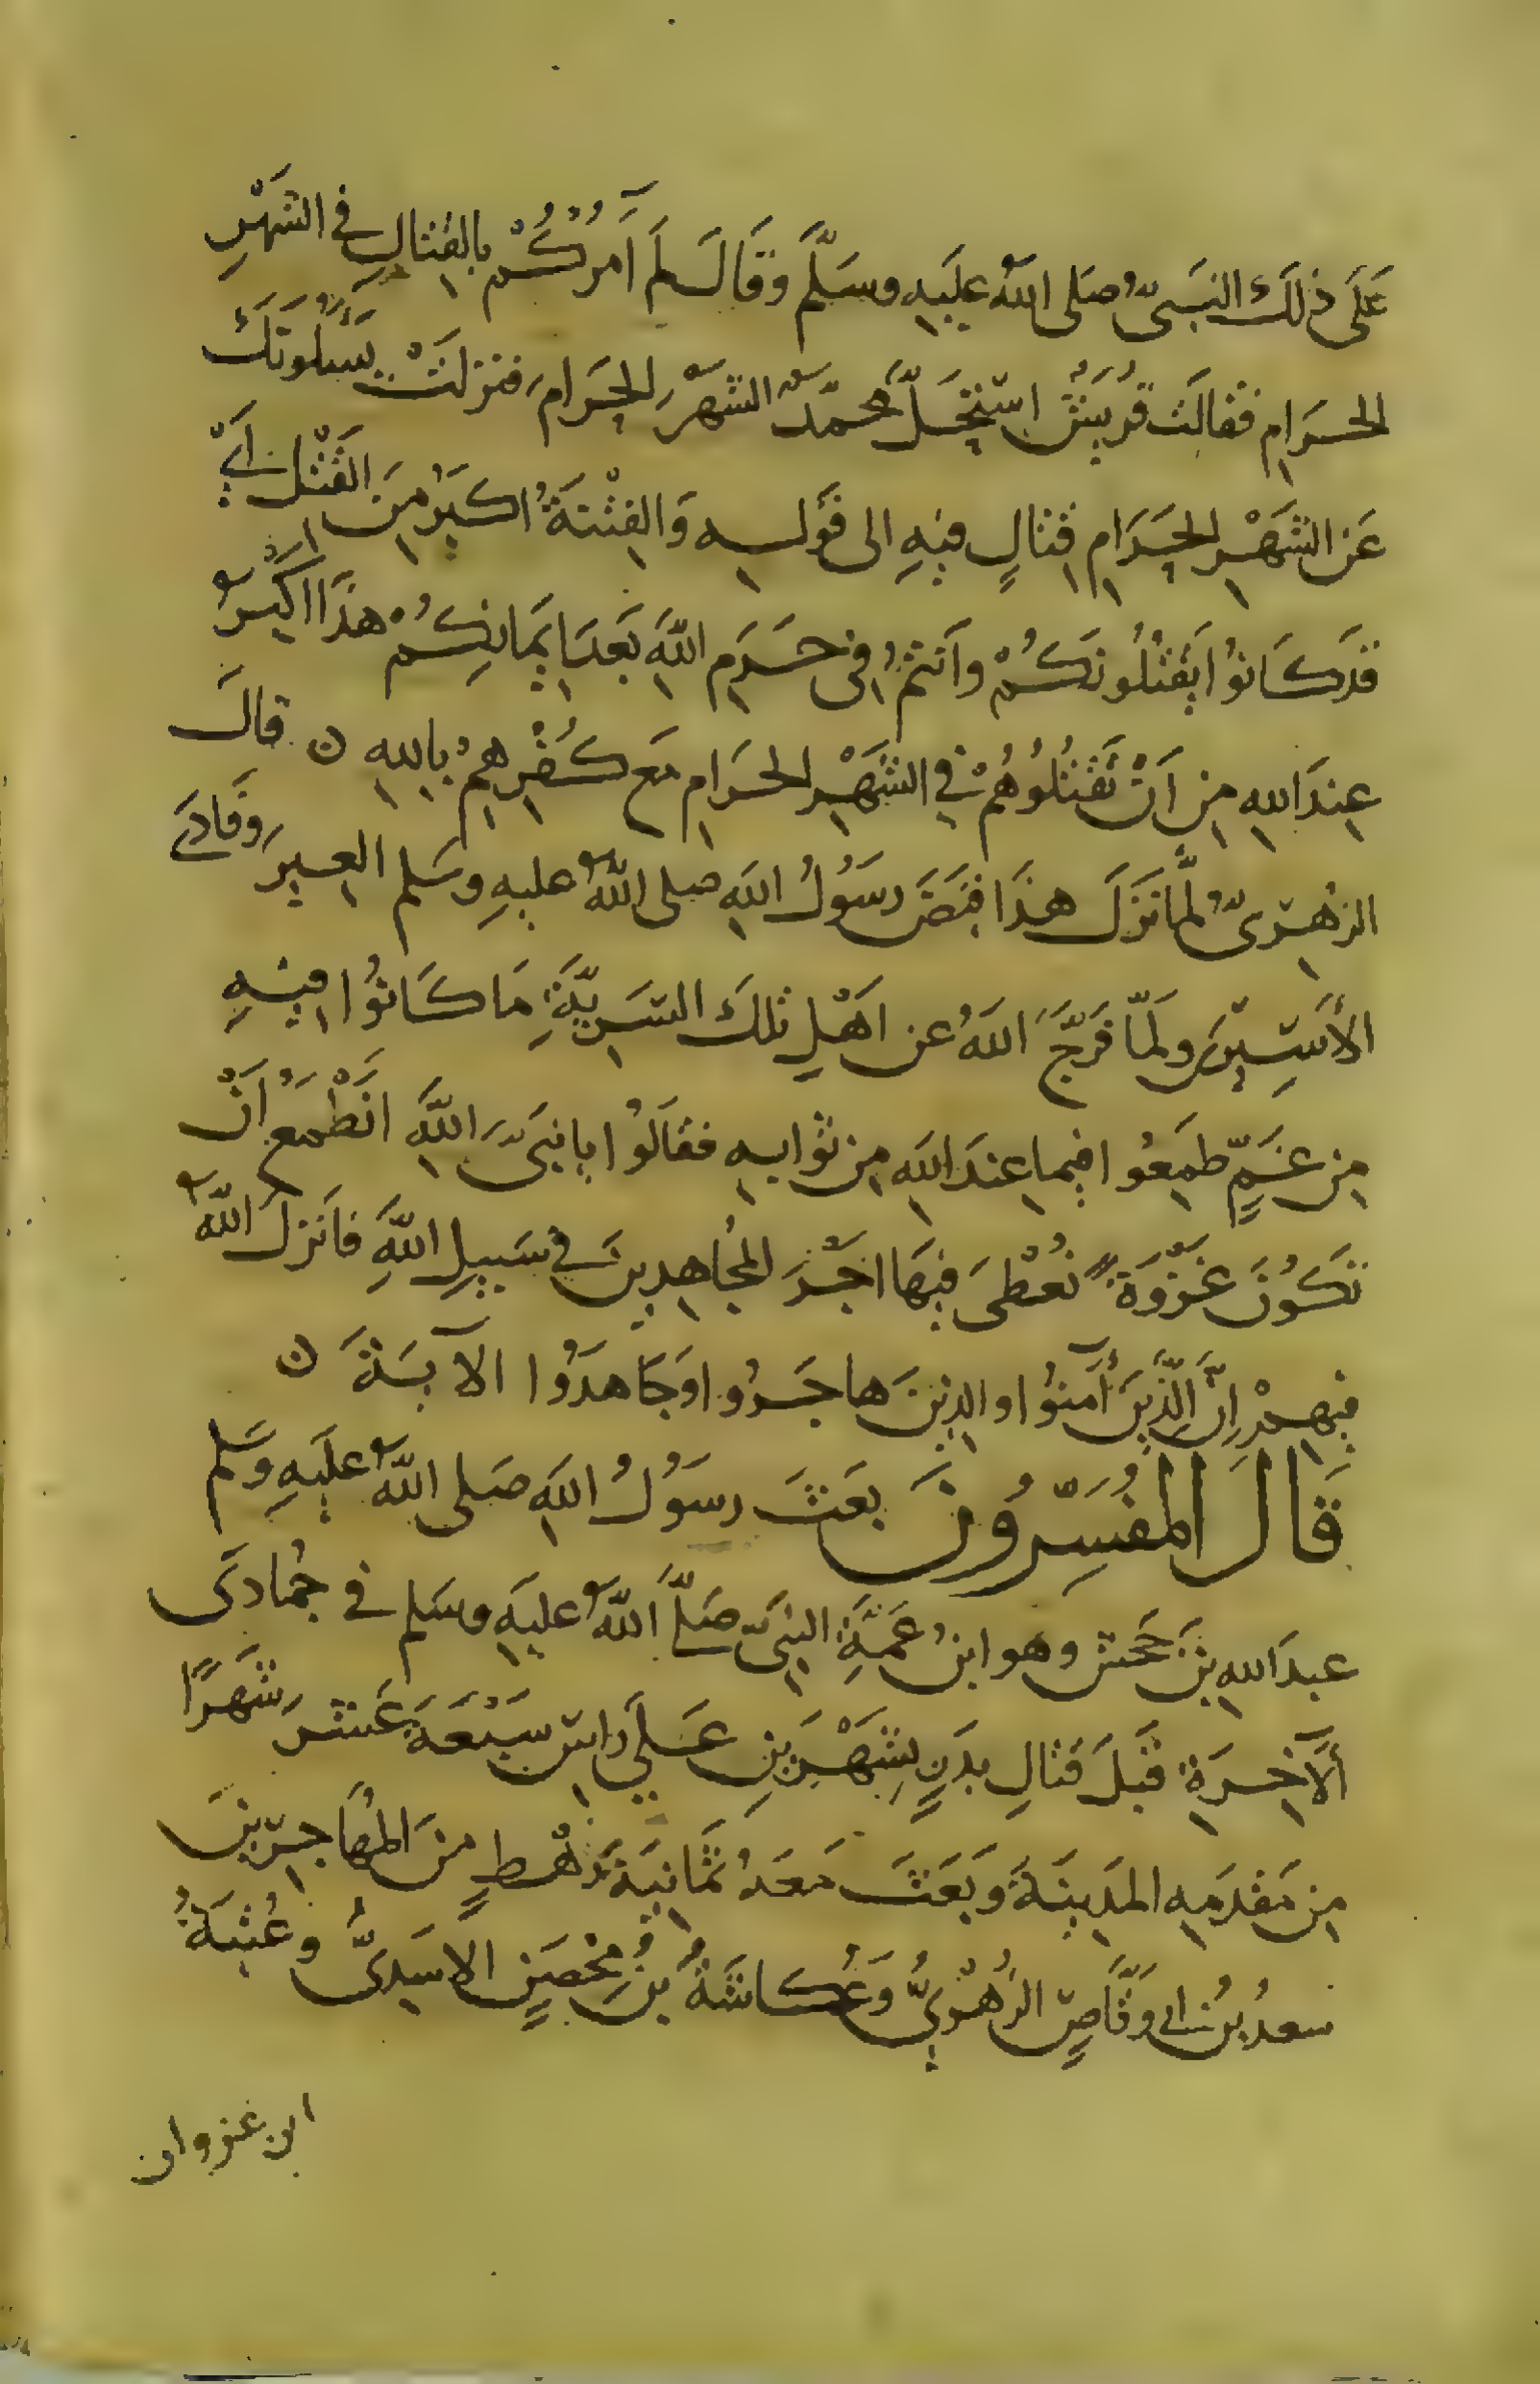 عَلَى ذلَكَ النَبَىُّ صَلى اللهُ عليَهِ وسَلَّمَ وقَالَ لَم آمُرْكُمْ بالِقتالِ فى الشَهْرِ
الحَرَامِ فقالَتْ قُرَيشٌ استَحَلَّ محمّدٌ الشَهْرَ الحَرَامَ فنزلتْ يَسْئَلُونَكَ
عَن الشَهْرِ الحَرَامِ قِتالٍ فيهِ الى قَولِهِ وَالفِتْنَةُ اكبَرُ مِنَ القَتْلِ اَىْ
قَد كَانوُا يَقْتُلُونَكُمْ واَنتمُ فى حَرَمِ اللهِ بَعدَ ايمَانِكُمْ هذَا اكبَرُ
عِندَ اللهِ مِن اَنْ تَقْتُلوُهُمْ فى الشَهْرِ الحَرَامِ مَع كُفْرِهِمْ باِللهِ ن قالَ
الزهُرىُّ لمَّا نَزَلَ هذَا قبَضَ رسَوُلُ اللهِ صلى اللهُ عليهِ وسَلم العِيرَ وفَادَى
الأَسَيرَينِ ولَمّا فَرَّجَ اللهُ عن اَهْلِ تلكَ السَرِيَّةِ مَا كَانوُا فيِهِ
مِن غَمٍّ طمِعُوا فيماِ عندَ اللهِ مِن ثوابهِ فقالَوُا يا نبىَّ اللهِ انَطْمَعُ اَنْ
تكَوُنَ غَزْوَةً نُعْطَى فيهَا اجْرَ المُجاهِدِينَ فى سَبيلِ اللهِ فاَنَزلَ اللهُ
فيِهِمْ إِنَّ الَّذِينَ آمَنوُا والذِينَ هاجَرُوا وَجَاهدَوُا الآيَةَ ن
قَالَ المُفسِّرُونَ بعَثَ رسَوُلُ اللهِ صَلى اللهُ علَيهِ وَسَلم
عبدَ اللهِ بنَ جَحش وهو ابنُ عَمَّةِ النبِىّ صَلَّى اللهُ عليَهِ وسَلم فى جُمادَى
اْلآخِرَةِ قَبلَ قتالِ بدَرٍ بِشَهْرَينِ عَلَى راسِ سَبْعَةَ عَشَرَ شَهَرًا
مِن مَقْدَمِهِ المدَينَةَ وبَعَثَ مَعَهُ ثَمَانِيَةَ رَهْطٍ مِنَ المُهَاجِرِينَ
سَعدُ بنُ ابى وَقّاصٍ الزُهْرِيُّ وَعُكاشَةُ بنُ مِحْصَنٍ الاسَدِىُّ وعُتبَةُ
ابن غزوان